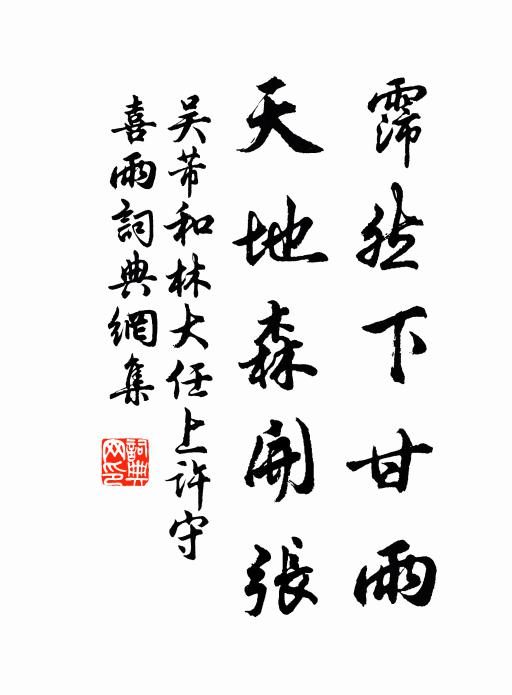 霈然下甘雨
天地森開張
吴芾和林大任上許守
喜雨詞典網集
詞典網印